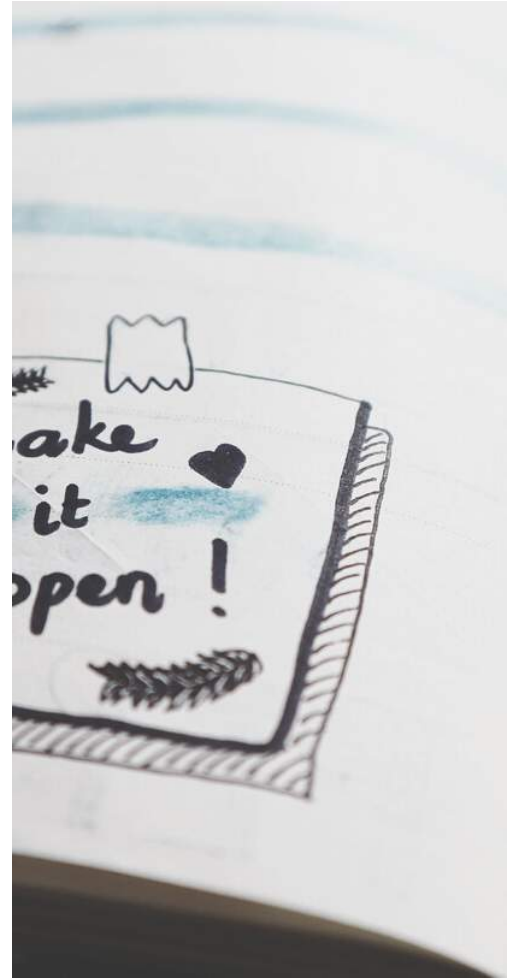 ake
it
ppen !